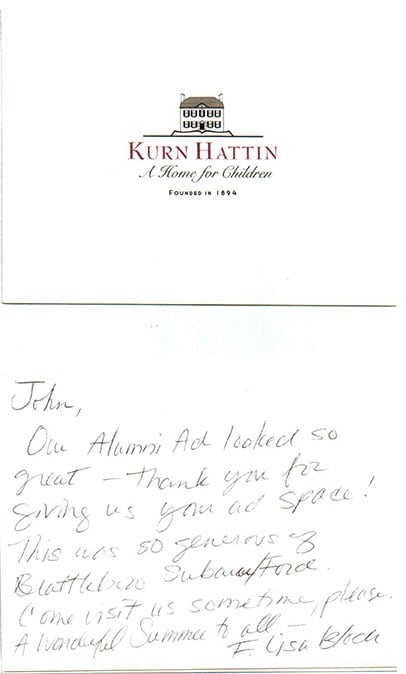 KURN HATTIN
A Home for Children
FOUNDED IN 1894
John,
Our Alumni Ad looked so
great - thank you for
giving us your ad space!
This was so generous of
Brattleboro Subaru/Ford.
Come visit us sometime, please.
A wonderful Summer to all -
F. Lisa